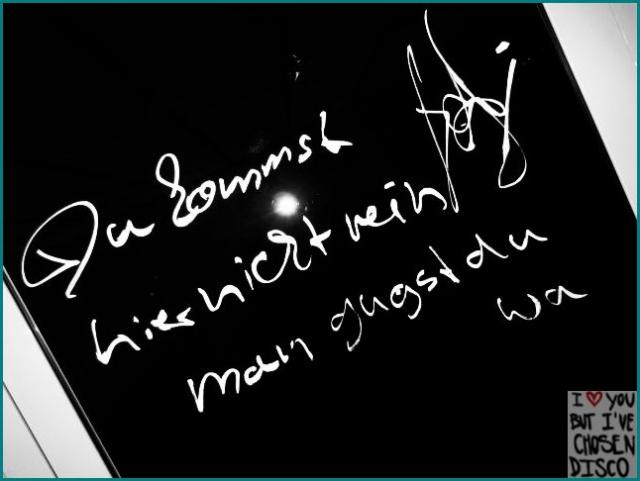 Du kommst
hier nicht rein
man gugst du
wa
I ♥ YOU
BUT I'VE
CHOSEN
DISCO